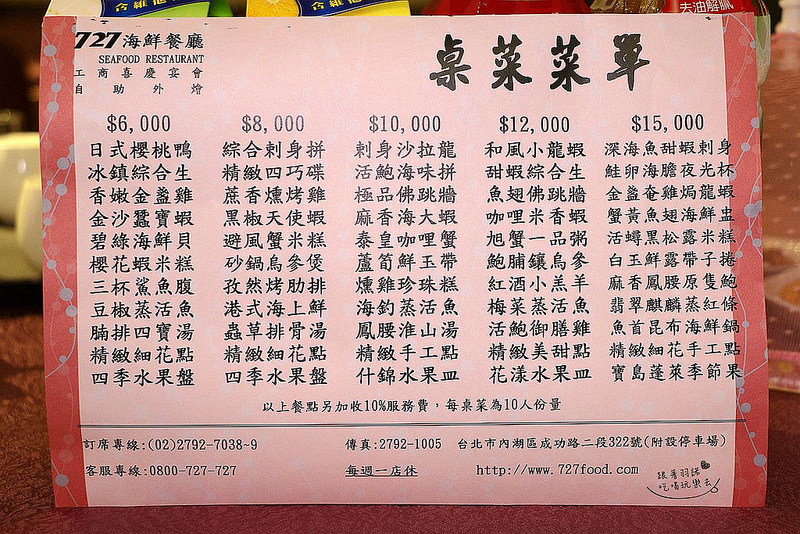 727海鮮餐廳
SEAFOOD RESTAURANT
工商喜慶宴會
自助外燴
桌菜菜單
$6,000
日式櫻桃鴨
冰鎮綜合生
香嫩金盞雞
金沙蠶寶蝦
碧綠海鮮貝
櫻花蝦米糕
三杯鯊魚腹
豆椒蒸活魚
腩排四寶湯
精緻細花點
四季水果盤
$8,000
綜合刺身拼
精緻四巧碟
蔗香燻烤雞
黑椒天使蝦
避風蟹米糕
砂鍋烏參煲
孜然烤肋排
港式海上鮮
蟲草排骨湯
精緻細花點
四季水果盤
$10,000
刺身沙拉龍
活鮑海味拼
極品佛跳牆
麻香海大蝦
泰皇咖哩蟹
蘆筍鮮玉帶
燻雞珍珠糕
海釣蒸活魚
鳳腰淮山湯
精緻手工點
什錦水果皿
$12,000
和風小龍蝦
甜蝦綜合生
魚翅佛跳牆
咖哩米香蝦
旭蟹一品粥
鮑脯鑲烏參
紅酒小羔羊
梅菜蒸活魚
活鮑御膳雞
精緻美甜點
花漾水果皿
$15,000
深海魚甜蝦刺身
鮭卵海膽夜光杯
金盞奄雞焗龍蝦
蟹黃魚翅海鮮盅
活蟳黑松露米糕
白玉鮮露帶子捲
麻香鳳腰原隻鮑
翡翠麒麟蒸紅條
魚首昆布海鮮鍋
精緻細花手工點
寶島蓬萊季節果
以上餐點另加收10%服務費，每桌菜為10人份量
訂席專線:(02)2792-7038~9
傳真:2792-1005
台北市內湖區成功路二段322號(附設停車場)
客服專線:0800-727-727
每週一店休
http://www.727food.com
跟著羽諾
吃喝玩樂去
去油解膩